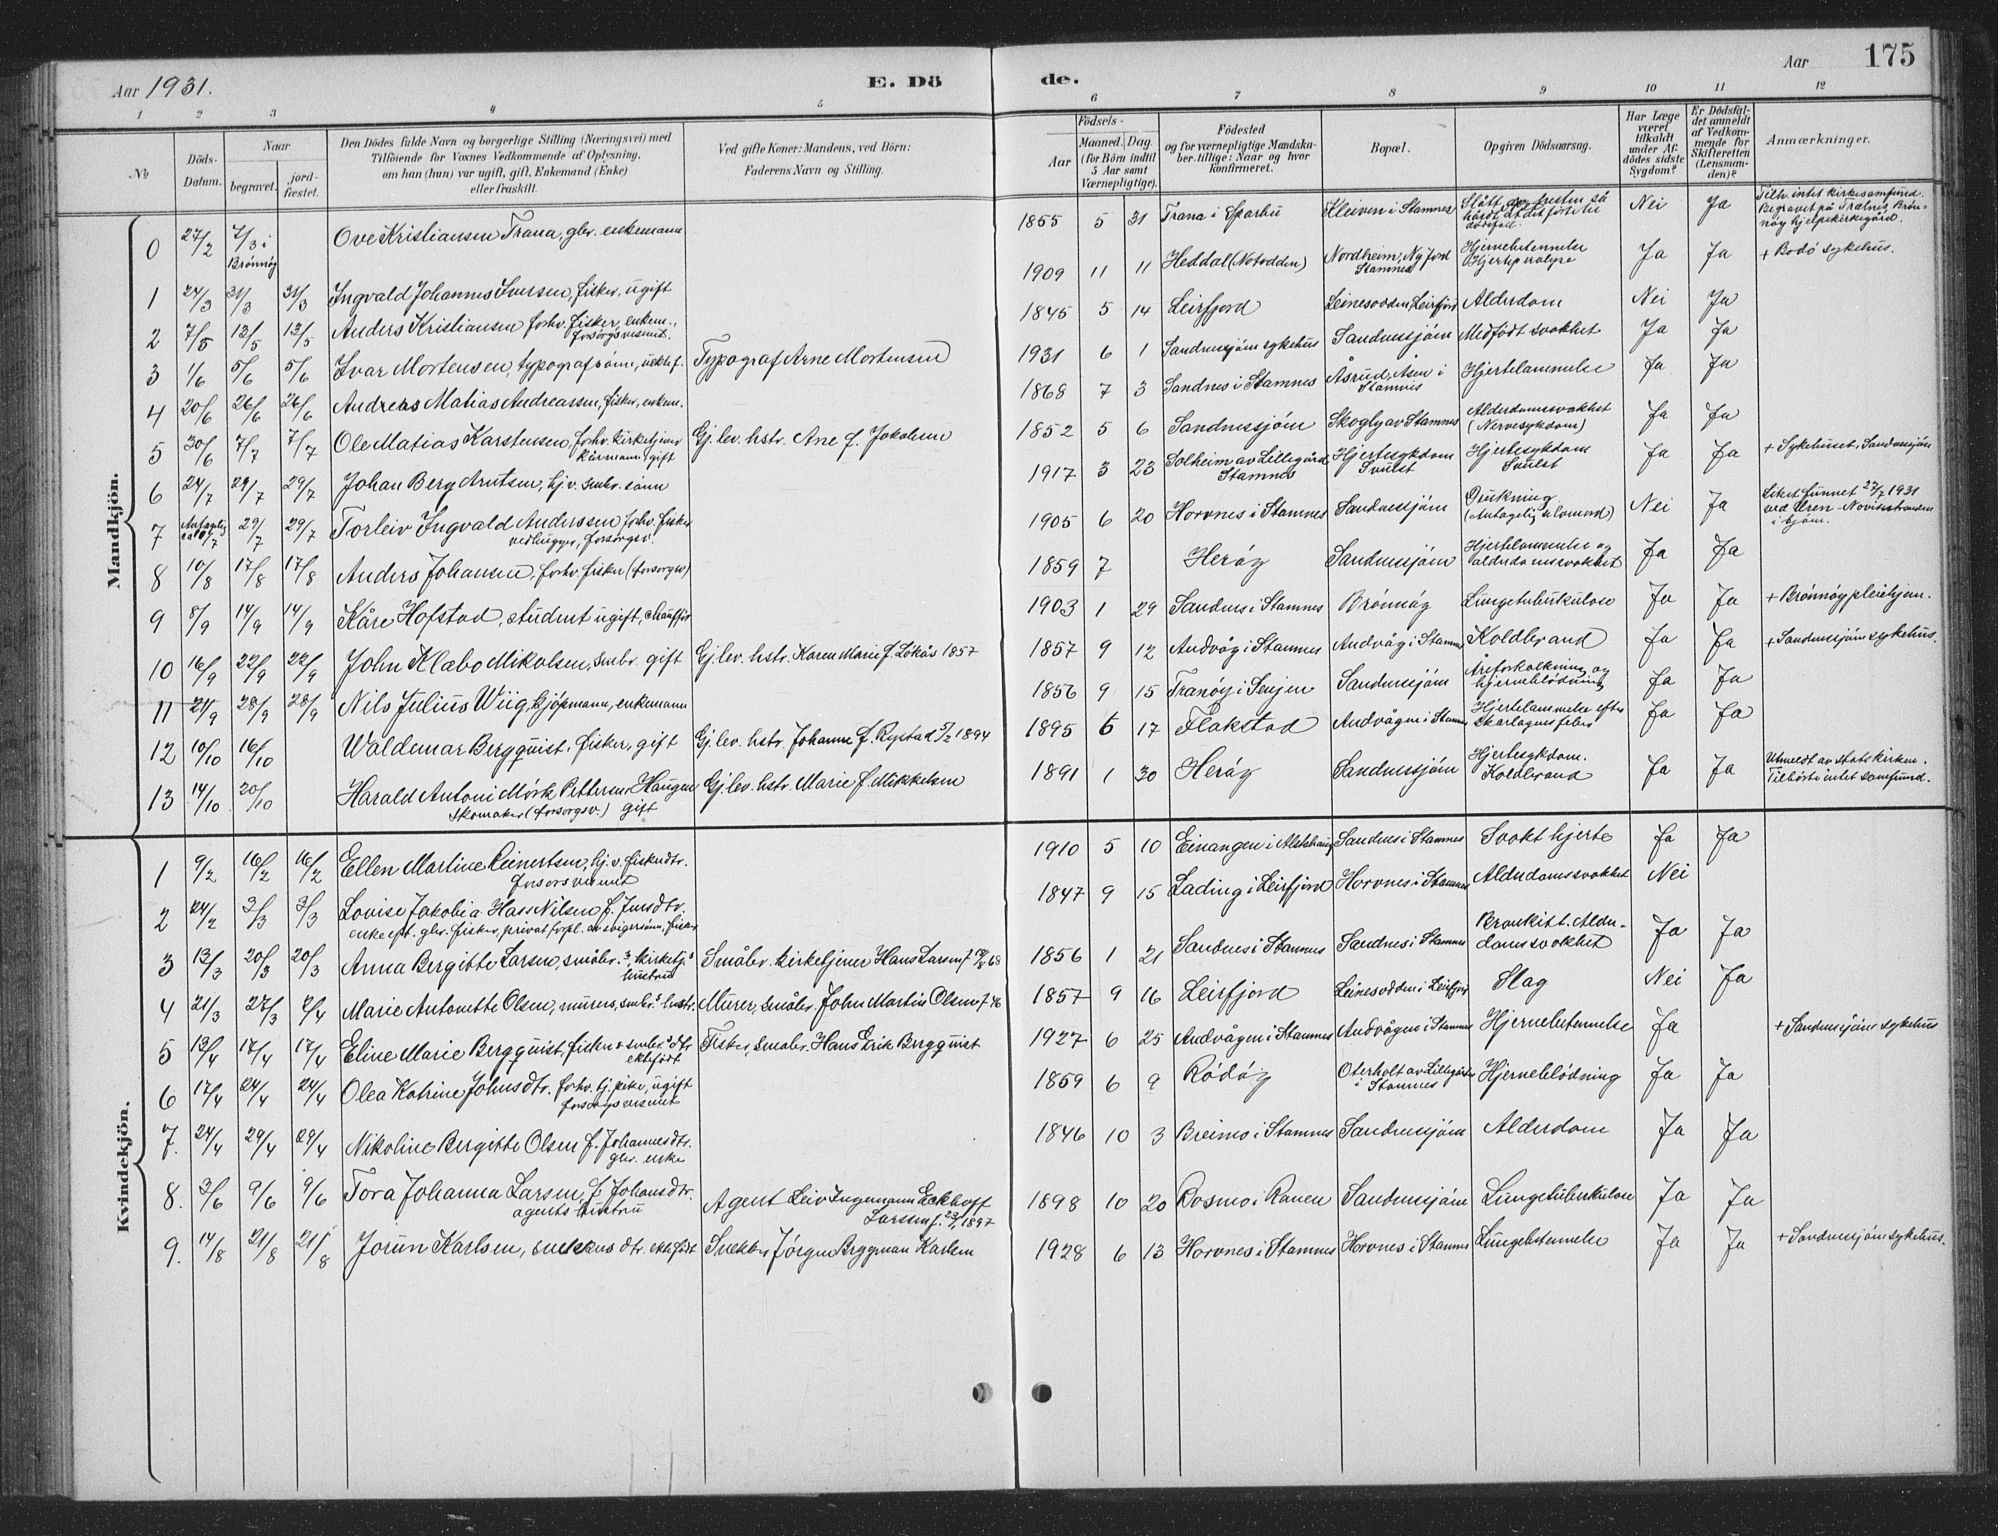 Aar 1931.
E. Dö
de.
Aar
175
1 2 3 4 5
6 7 8 9 10 11 12
№
Döds-
Datum.
Naar
begravet.
jord-
fæstet.
Den Dödes fulde Navn og borgerlige Stilling (Næringsvei) med
Tilföiende for Voxnes Vedkommende af Oplysning,
om han (hun) var ugift, gift, Enkemand (Enke)
eller fraskilt.
Ved gifte Koner: Mandens, ved Börn:
Faderens Navn og Stilling.
Födsels-
Aar
Maaned.
Dag
(for Börn indtil
5 Aar samt
Værnepligtige).
Födested
og for værnepligtige Mandska-
ber tillige: Naar og hvor
konfirmeret.
Bopæl.
Opgiven Dödsaarsag.
Har Læge
været
tilkaldt
under Af-
dödes sidste
Sygdom?
Er Dödsfal-
det anmeldt
af Vedkom-
mende for
Skifteretten
(Lensman-
den)?
Anmærkninger.
Mandkjön.
0 27/2 7/3 i Brønnøy Ove Kristiansen Trana, gbr. enkemann 1855 5 31 Trana i Sparbu Kleiven i Stamnes Nei Ja Tilh. intet kirkesamfund. Begravet på Trælnes, Brønnøy hjelpekirkegård.
1 24/3 31/3 31/3 Ingvald Johannes Iversen, fisker, ugift 1909 11 11 Heddal (Notodden) Nordheim, Nyfjord Stamnes Hjernebetennelse Ja Ja + Bodø sykehus.
2 7/5 13/5 13/5 Anders Kristiansen forhv. fisker, enkem., forsorgsvesenet. 1845 5 14 Leirfjord Leinesodden, Leirfjord Alderdom Nei Ja
3 1/6 5/6 5/6 Ivar Mortensen, typografsønn, Typograf Arne Mortensen 1931 6 1 Sandnessjøen sykehus Sandnessjøen Medfødt svakhet Ja Ja
4 20/6 26/6 26/6 Andreas Matias Andreassen, fisker, enkem. 1868 7 3 Sandnes i Stamnes Åsrud, Åsen i Stamnes Hjertelammelse Ja Ja
5 30/6 7/7 7/7 Ole Matias Karstensen, forhv. kirketjener kårmann, gift Gj.lev. hstr. Ane f. Jakobsen 1852 5 6 Sandnessjøen Skogly av Stamnes Alderdomssvakhet (Nervesykdom) Ja Ja
6 24/7 29/7 29/7 Johan Berg Arntsen, hj.v. småbr. sønn 1917 3 23 Solheim av Lillegård Stamnes Hjertesykdom Svulst Hjertesykdom Svulst Ja Ja + Sykehuset, Sandnessjøen
7 Antagelig 7 29/7 29/7 Torleiv Ingvald Anderssen forhv. fisker vedhugger, forsorgsv. 1905 6 20 Horvnes i Stamnes Sandnessjøen Drukning (Antagelig selvmord) Nei Ja Liket funnet 27/7 1931 ved i sjøen.
8 10/8 17/8 17/8 Anders Johansen, forhv. fisker (forsorgsv) 1859 7 Herøy Sandnessjøen Hjertelammelse og alderdomssvakhet Ja Ja
9 8/9 14/9 14/9 Kåre Hofstad, student ugift, chauffør 1903 1 29 Sandnes i Stamnes Brønnøy Lungetuberkulose Ja Ja + Brønnøy pleiehjem.
10 16/9 22/9 22/9 John Klæbo Mikalsen, småbr. gift Gj.lev. hstr. Karen Marie f. Løkås 1857 1857 9 12 Andvåg i Stamnes Andvåg i Stamnes Koldbrand Ja Ja + Sandnessjøen sykehus.
11 21/9 28/9 28/9 Nils Julius Wiig, kjøpmann, enkemann 1856 9 15 Tranøy i Senjen Sandnessjøen Åreforkalkning og hjerneblødning Ja Ja
12 10/10 16/10 Waldemar Bergquist, fisker, gift Gj.lev. hstr. Johanne f. Rystad 5/2 1894 1895 6 17 Flakstad Andvågen i Stamnes Hjertelammelse efter Skarlagensfeber Ja Ja
13 14/10 20/10 Harald Antoni Mørk Pettersen Haugen skomaker (forsorgsv.) gift Gj.lev. hstr. Marie f. Mikkelsen 1891 1 30 Herøy Sandnessjøen Hjertesykdom. Koldbrand Ja Ja Utmeldt av Statskirken. Tilhørte intet samfund.
Kvindekjön.
1 9/2 16/2 16/2 Ellen Martine Reinertsen, hj.v. fiskerdtr. forsorgsvesenet 1910 5 10 Einangen i Alstahaug Sandnes i Stamnes Svakt hjerte Ja Ja
2 24/2 3/3 3/3 Lovise Jakobia Hass Nilsen f. Jensdtr. enke eft. gbr. fisker, privat forpl. av svigersønn, fisker 1847 9 15 Lading i Leirfjord Horvnes i Stamnes Alderdomssvakhet Nei
3 13/3 20/3 20/3 Anna Bergitte Larsen, småbr.s, kirketj.s hustru Småbr. kirketjener Hans Larsen f. 68 1856 1 21 Sandnes i Stamnes Sandnes i Stamnes Bronkitt. Alderdomssvakhet Ja Ja
4 21/3 27/3 2/4 Marie Antonette Olsen, murers, småbr.s hustr. Murer, småbr. John Martin Olsen f. 46 1857 9 16 Leirfjord Leinesodden i Leirfjord Slag Nei Ja
5 13/4 17/4 17/4 Eline Marie Bergquist, fiskers småbr.s dtr ektefødt Fisker, småbr. Hans Erik Bergquist 1927 6 25 Andvågen i Stamnes Andvågen i Stamnes Hjernebetennelse Ja + Sandnessjøen sykehus
6 17/4 24/4 24/4 Olea Katrine Johnsdtr. forhv. tj. pike, ugift forsorgsvesenet 1859 6 9 Rödöy Oterholt av Lillegården i Stamnes Hjerneblødning Ja Ja
7. 24/4 29/4 29/4 Nikoline Bergitte Olsen f. Johannesdtr. gbr. enke 1846 10 3 Breimo i Stamnes Sandnessjøen Alderdom Ja Ja
8. 3/6 9/6 9/6 Tora Johanna Larsen, f. Johansdtr. agents hustru Agent Leiv Ingemann Eckhoff Larssen f. 23/1 1897 1898 10 20 Rosmo i Ranen Sandnessjøen Lungetuberkulose Ja Ja
9. 14/8 21/8 21/8 Jorun Karlsen, snekkers dtr. ektefødt Snekker Jörgen Bergman Karlsen 1928 6 13 Horvnes i Stamnes Horvnes i Stamnes Lungebetennelse Ja Ja + Sandnessjøen sykehus.